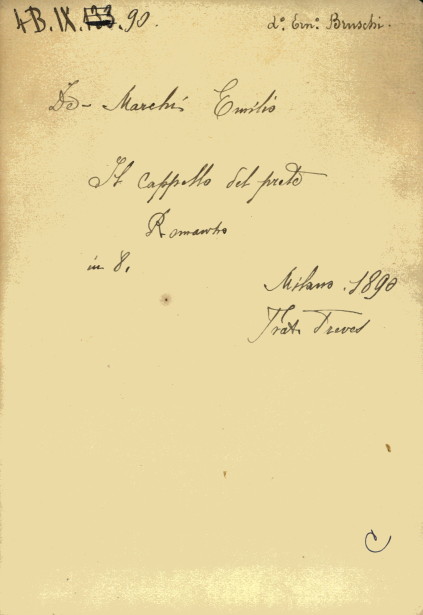 4B.IX.133.90.
d.º Ern.º Bruschi.
De-Marchi Emilio
Il cappello del prete
Romanzo
in 8.
Milano. 1890
Frat. Treves
C